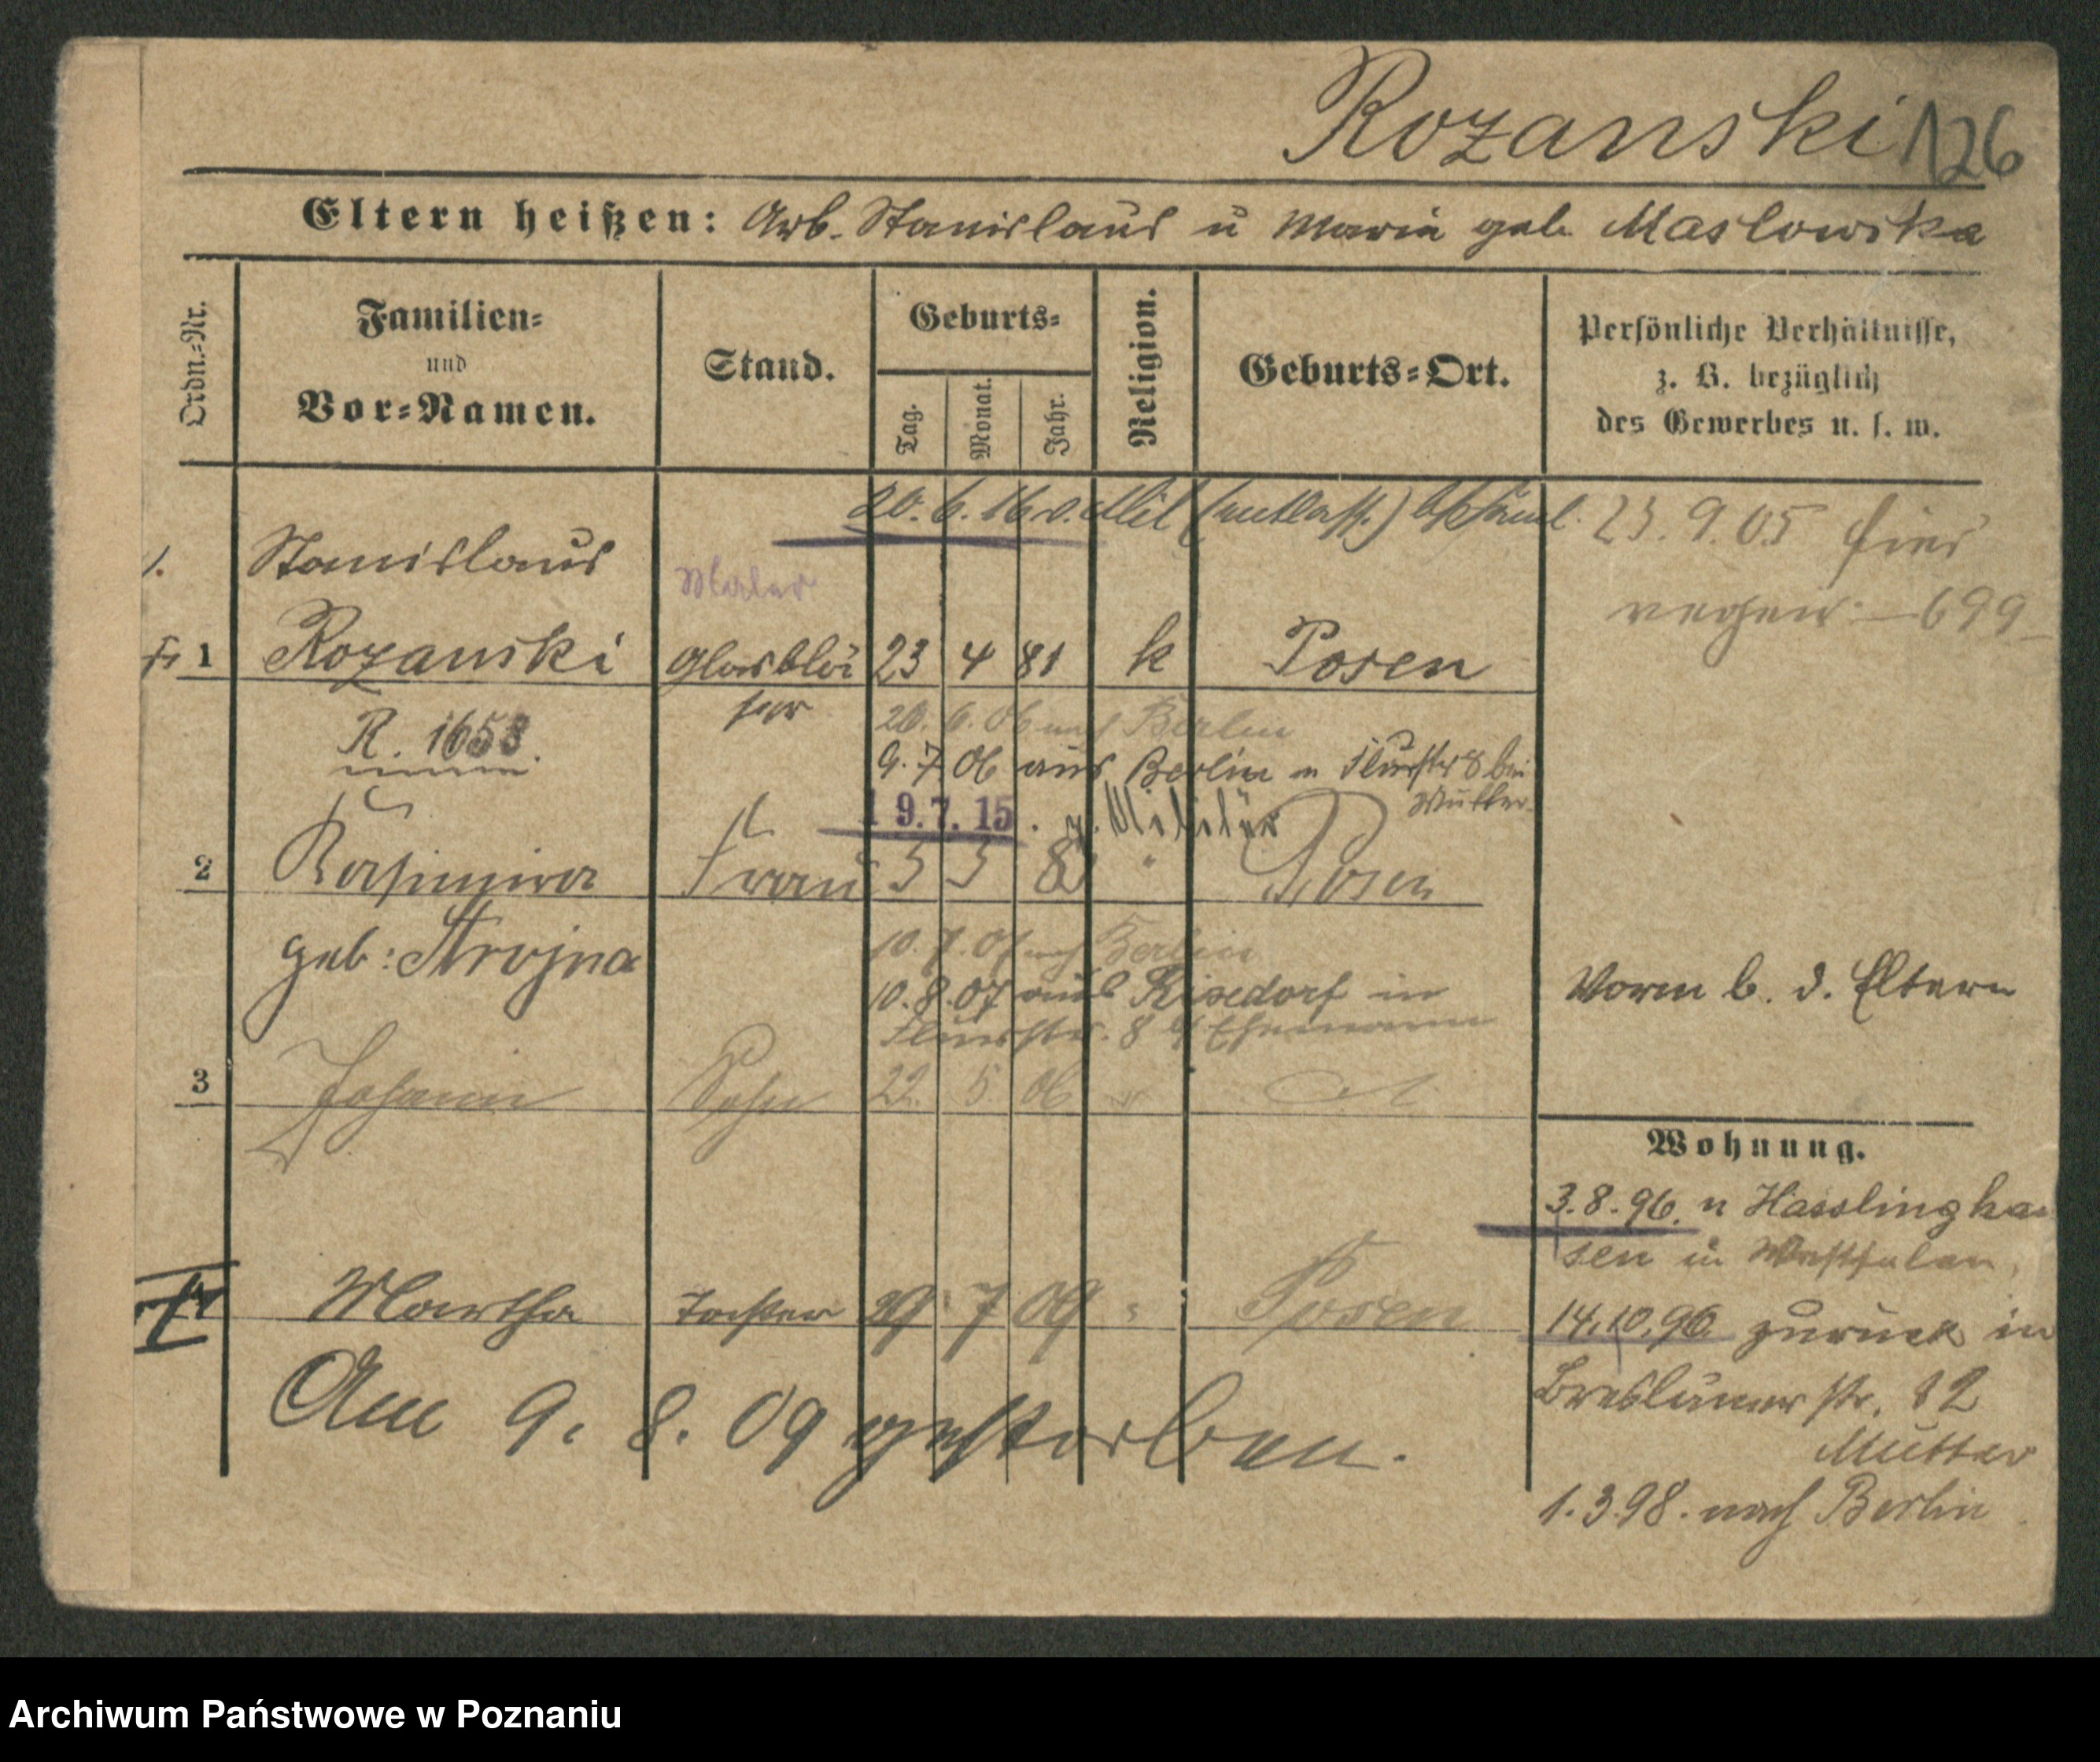 Rozanski 126
Eltern heißen: Arb. Stanislaus u Maria geb. Maslowska
Ordn.-Nr.
Familien-
und
Vor-Namen.
Stand.
Geburts-
Tag.
Monat.
Jahr.
Religion.
Geburts-Ort.
Persönliche Verhältnisse,
z. B. bezüglich
des Gewerbes u. s. w.
20. 6. 16 v. Mil
23. 9. 05
699
1. Stanislaus Maler
1 Rozanski Glasblä 23 4 81 k Posen
ser
R. 1653.
26. 6. 06 nach Berlin
9. 7 06 aus Berlin n Flurstr 8 bei
Mutter
19.7.15. z. Militär
2 Kasimira Frau 5 5 " Posen
geb: Strojna
10. 7. nach Berlin
10. 8. 07 aus Rixdorf in
Flurstr. 8 Ehemann
Vorm b. d. Eltern
3 Johann Sohn 22. 5 06
Wohnung.
3. 8. 96. n Hasslingha-
sen in Westfalen
14. 10. 96 zurück in
Breslauer str. 32
Mutter
1. 3 98. nach Berlin
Martha Tochter 29 7 09 " Posen
Am 9. 8. 09 gestorben.
Archiwum Państwowe w Poznaniu